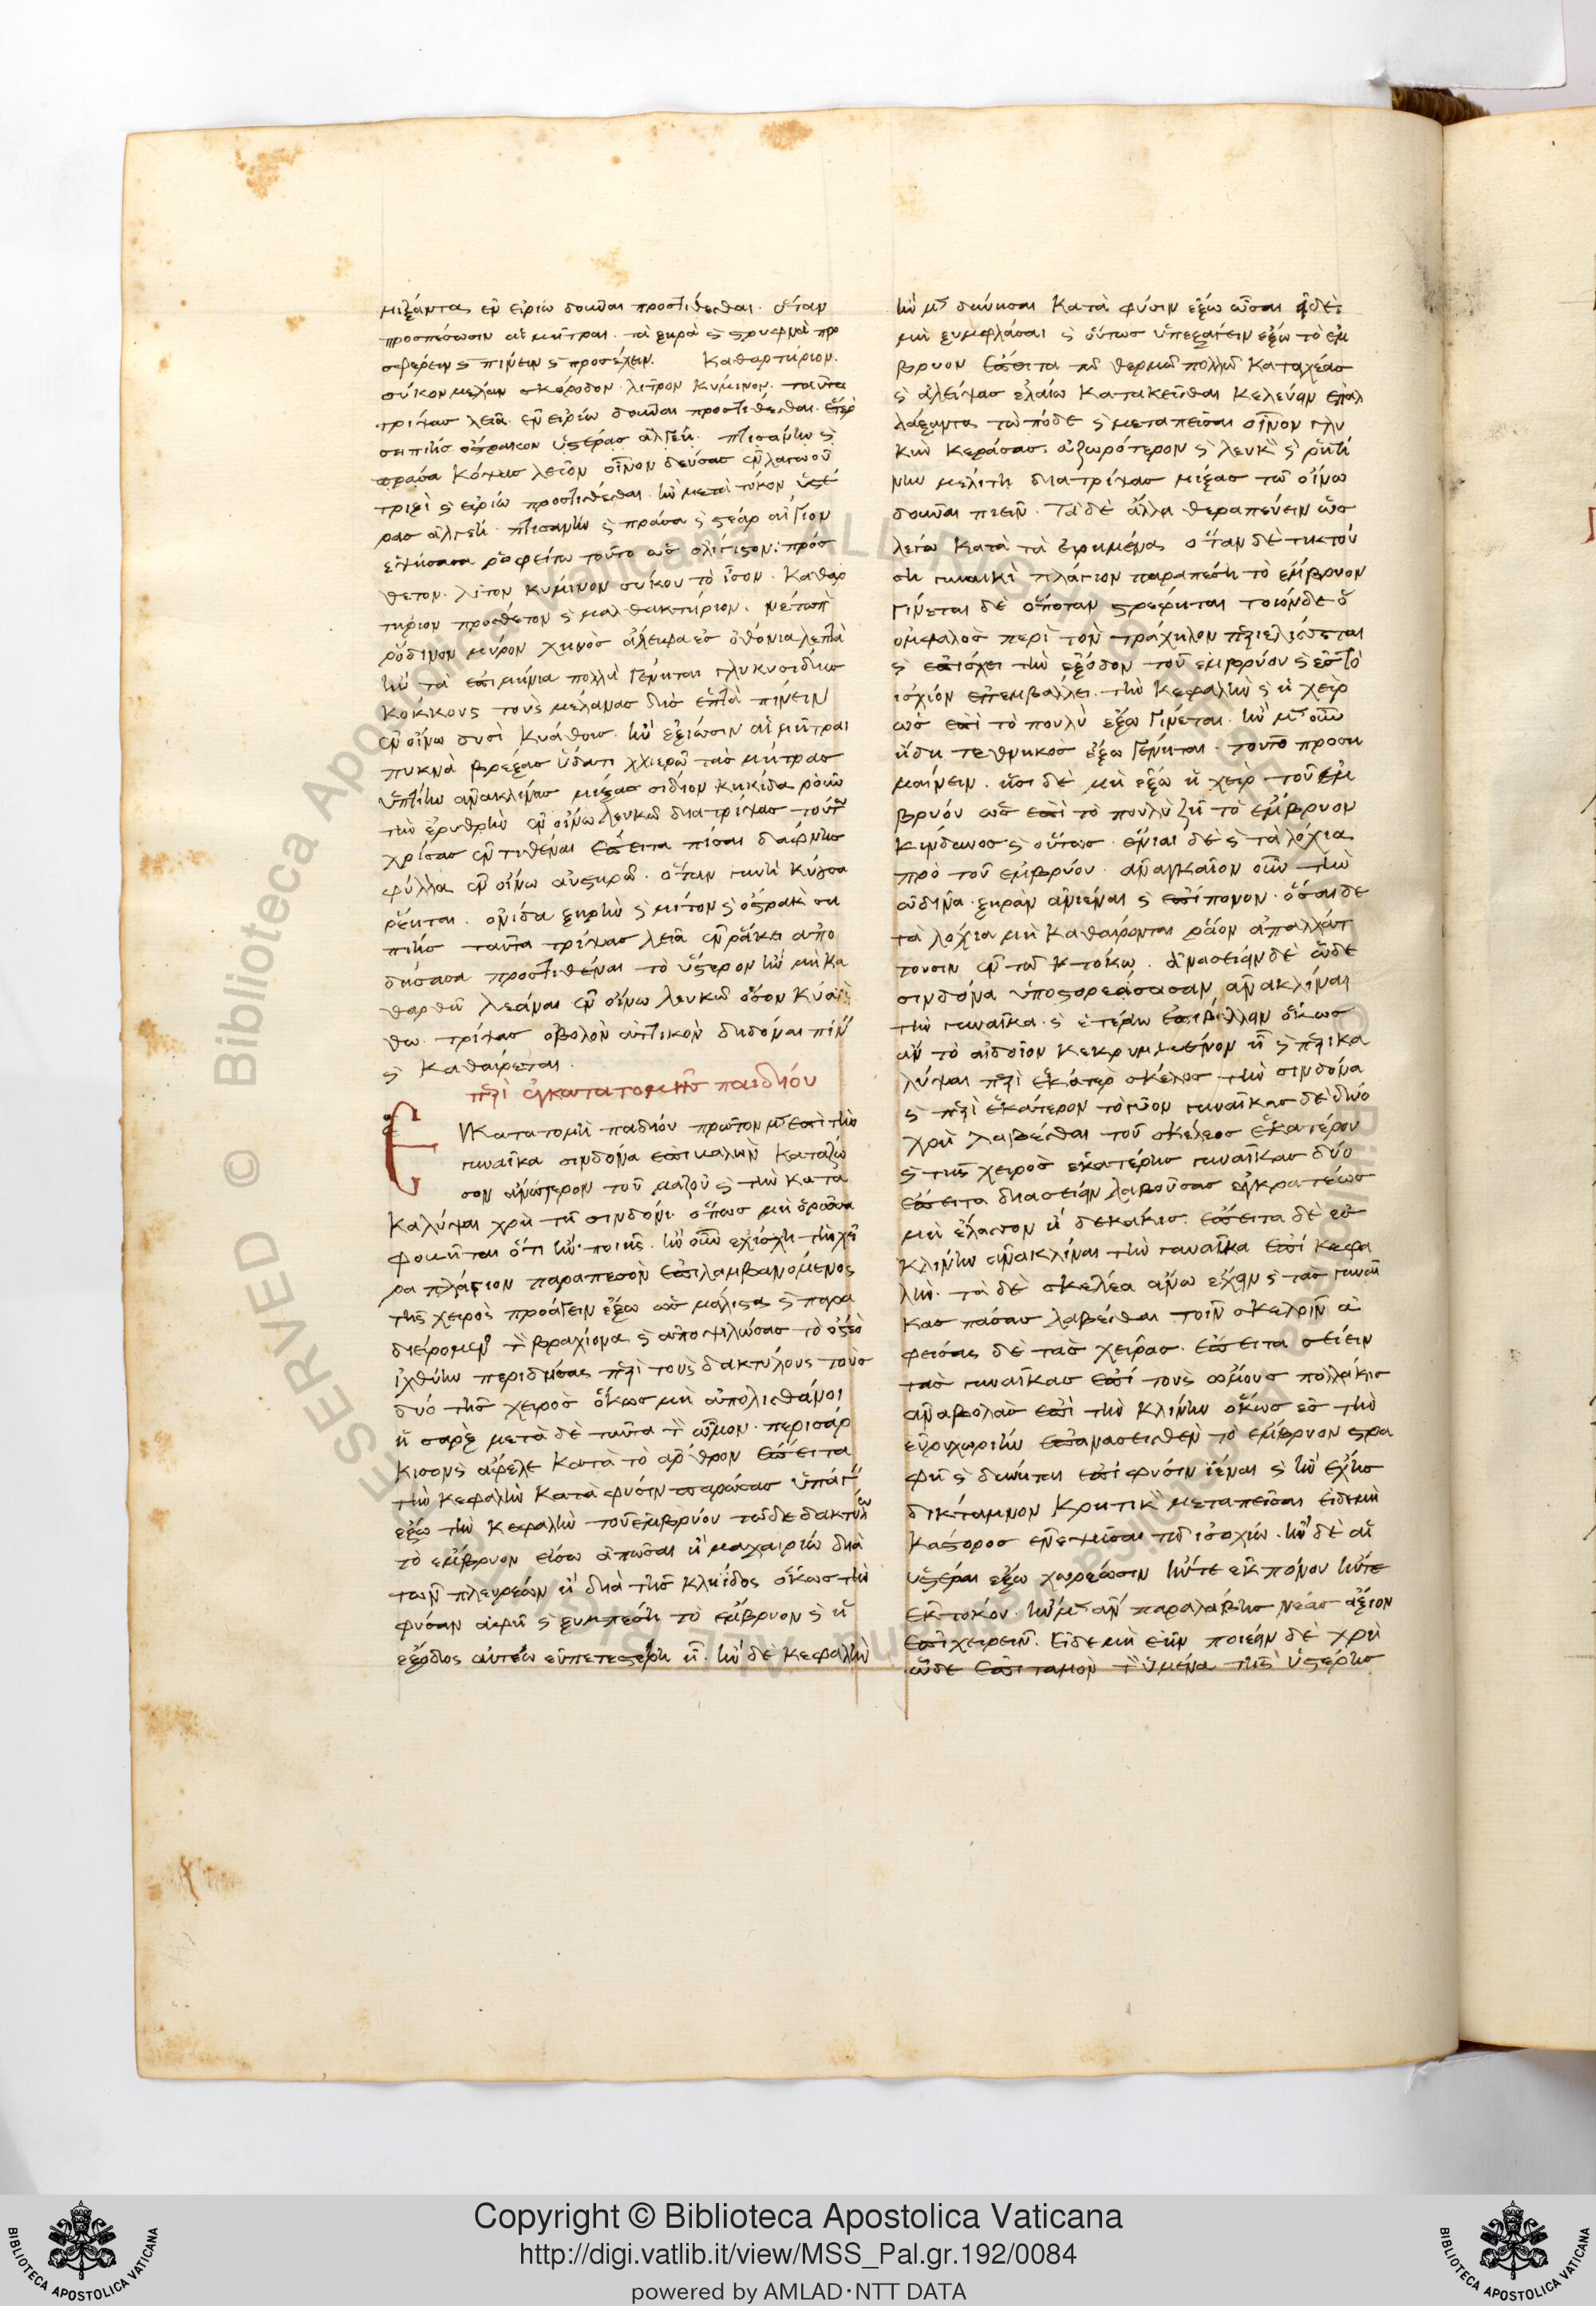 μιξάντας ἐν εἰρίω δοῦναι προστίθεσθαι. ὅταν
προσπέσωσιν αἱ μῆτραι. τὰ ξηρὰ ϛ στρυφνὰ προ
σφέρειν ϛ πίνειν ϛ προσέχειν. Καθαρτήριον.
σύκον μέλαν σκόροδον. λίτρον κύμινον. ταῦτα
τρίψας λεῖα ἐν εἰρίω δοῦναι προστίθεσθαι.
σηπίης ὄστρακον ὑστέρας ἀλγέη. πτισάνην ϛ
πράσα κόψας λεῖον οἶνον δεύσας ἐν λαγωοῦ
τριχὶ ϛ εἰρίω προστίθεσθαι. ἢν μετὰ τόκον ὑστέ
ρας ἀλγέη. πτισάνην ϛ πράσα ϛ στέαρ αἴγιον
ἑψήσασα ῥοφείτω τοῦτο ὡς ὀλίγιστον: πρόσ
θετον. λίτον κύμινον σύκου τὸ ἴσον. καθαρ
τήριον προσθετὸν ϛ μαλθακτήριον. νέτωπ
ῥόδινον μύρον χηνὸς ἄλειφα ἐς ὀθόνια λεπτὰ
ἢν τὰ ἐπιμήνια πολλὰ γένηται γλυκυσίδης
κόκκους τοὺς μέλανας δὶς ἑπτὰ πίνειν
ἐν οἴνω δυσὶ κυάθοις. ἢν ἐξιῶσιν αἱ μῆτραι
πυκνὰ βρέξας ὕδατι χλιερῶ τὰς μήτρας
ὑπτίην ἀνακλίνας μίξας σίδιον κηκίδα ῥοῦν
τὴν ἐρυθρὴν ἐν οἴνω λευκῶ διατρίψας τούτω
χρίσας ἐντιθέναι ἔπειτα πίσαι δάφνης
φύλλα ἐν οἴνω αὐστηρῶ. ὅταν γυνὴ κύουσα
ῥέηται. ὀνίδα ξηρὴν ϛ μίτον ϛ ὄστρακον ση
πίης ταῦτα τρίψας λεῖα ἐν ῥάκει ἀπο
δήσασα προστιθέναι τὸ ὕστερον ἢν μὴ κα
θαρθῆ λεάναι ἐν οἴνω λευκῶ ὅσον κυά
θω τρίψας ὀβολὸν ἀττικὸν διδόναι πίν
ϛ καθαίρεται.
περὶ ἐγκατατομῆς παιδίου
Ε γκατατομὴ παιδίου πρῶτον μὲν ἐπὶ τὴν
γυναῖκα σινδόνα ἐπικαλὴν κατάζω
σον ἀνώτερον τοῦ μαζοῦ ϛ τὴν κατα
καλύψαι χρὴ τῆ σινδόνι ὅπως μὴ ὁρῶσα
φοβῆται ὅτι ἢν ποιῆς. ἢν οὖν ἐχίσχη τὴν χεῖ
ρα πλάγιον παραπεσὸν ἐπιλαμβανόμενος
τῆς χειρὸς προάγειν ἔξω ὡς μάλιστα ϛ παρα
διείρομεν τὸν βραχίονα ϛ ἀποψιλώσας τὸ ὀστέον
ἰχθύην περιδήσας περὶ τοὺς δακτύλους τοὺς
δύο τῆς χειρὸς ὅκως μὴ ἀπολισθάνοι
ἡ σὰρξ μετὰ δὲ ταῦτα τὸν ὦμον. περισάρ
κισον ϛ ἄφελε κατὰ τὸ ἄρθρον ἔπειτα
τὴν κεφαλὴν κατὰ φύσιν παρώσας ὑπάγειν
ἔξω τὴν κεφαλὴν τοῦ ἐμβρύου τῶδε δακτύλω
τὸ ἔμβρυον εἴσω ἀπῶσαι ἢ μαχαιρίω διὰ
τῶν πλευρέων ἢ διὰ τῆς κληῖδος ὅκως τὴν
φύσαν ἀφῆ ϛ ξυμπέση τὸ ἔμβρυον ϛ ἡ
ἔξοδος αὐτέω εὐπετεστέρη ἦ. ἢν δὲ κεφαλὴν
ἢν μὲν δύνησαι κατὰ φύσιν ἔξω ὦσαι εἰ δὲ
μὴ ξυμφλάσαι ϛ οὕτως ὑπεξαγειν ἔξω τὸ ἔμ
βρυον ἔπειτα τῶ θερμῶ πολλῶ καταχέας
ϛ ἀλείψας ἐλαίω κατακεῖσθαι κελεύειν ἐπαλ
λάξαντα τὼ πόδε ϛ μεταπεῖσαι οἶνον γλυ
κὺν κεράσας. ἀζωρότερον ϛ λευκὸν ϛ ῥητί
νην μέλιτι διατρίψας μίξας τῶ οἴνω
δοῦναι πιεῖν. Τὰ δὲ ἄλλα θεραπεύειν ὡς
λεχὼ κατὰ τὰ εἰρημένα. ὅταν δὲ τικτού
ση γυναικὶ πλάγιον παραπέση τὸ ἔμβρυον
γίνεται δὲ ὁπόταν στρέφηται τοιόνδε ὁ
ὀμφαλὸς περὶ τὸν τράχηλον περιελίσσεται
ϛ ἐπίσχει τὴν ἔξοδον τοῦ ἐμβρύου ϛ ἐς τὸ
ἰσχίον ἐπεμβάλλει. τὴν κεφαλὴν ϛ ἡ χεὶρ
ὡς ἐπὶ τὸ πουλὺ ἔξω γίνεται. ἢν μὲν οὖν
ἤδη τεθνηκὸς ἔξω γένηται. τοῦτο προση
μαίνειν. ᾗσι δὲ μὴ ἔξω ἡ χεὶρ τοῦ ἐμ
βρύου ὡς ἐπὶ τὸ πουλὺ ζῆ τὸ ἔμβρυον
κίνδυνος ϛ οὕτως. ἔνιαι δὲ ϛ τὰ λόχια
πρὸ τοῦ ἐμβρύου. ἀναγκαῖον οὖν τὴν
ὠδῖνα. ξηρὰν ἀνιέναι ϛ ἐπίπονον. ὅσαι δὲ
τὰ λόχια μὴ καθαίρονται ῥᾶον ἀπαλλάτ
τουσιν ἐν τῶ τόκω. ἀνασείειν δὲ ὧδε
σινδόνα ὑποστορέσασαν ἀνακλίναι
τὴν γυναῖκα. ϛ ἑτέρην ἐπιβάλλειν ὅκως
ἂν τὸ αἰδοῖον κεκρυμμένον ἦ ϛ περικα
λύψαι περὶ ἑκάτερον σκέλος τὴν σινδόνα
ϛ περὶ ἑκάτερον τὸ γυῖον γυναῖκας δὲ δύο
χρὴ λαβέσθαι τοῦ σκέλεος ἑκατέρου
ϛ τῆς χειρὸς ἑκατέρης γυναῖκας δύο
ἔπειτα διασείειν λαβούσας ἐγκρατέως
μὴ ἔλασσον ἢ δεκάκις. ἔπειτα δὲ ἐς
κλίνην ἀνακλίναι τὴν γυναῖκα ἐπὶ κεφα
λὴν. τὰ δὲ σκέλεα ἄνω ἔχειν ϛ τὰς γυναῖ
κας πάσας λαβέσθαι τοῖν σκελοῖν ἀ
φείσας δὲ τὰς χεῖρας. ἔπειτα σείειν
τὰς γυναῖκας ἐπὶ τοὺς ὤμους πολλάκις
ἀναβολὰς ἐπὶ τὴν κλίνην ὅκως ἐς τὴν
εὐρυχωρίην ἐπανασεισθὲν τὸ ἔμβρυον στρα
φῆ ϛ δύνηται ἐπὶ φύσιν ἰέναι ϛ ἢν ἔχης
δίκταμνον κρητικὸν μεταπεῖσαι εἰ δὲ μὴ
κάστορος ἐνεψῆσαι τῶ ἰσοχίω. ἢν δὲ αἱ
ὑστέραι ἔξω χωρέωσιν ἤν τε ἐκ πόνου ἤν τε
ἐκ τόκου. ἢν μὲν ἂν παραλάβης νέας ἄξιον
ἐπιχειρεῖν. εἰ δὲ μὴ ἐᾶν ποιέειν δὲ χρὴ
ὧδε ἐπιταμὸν τὸν ὑμένα τῆς ὑστέρης
Copyright © Biblioteca Apostolica Vaticana
http://digi.vatlib.it/view/MSS_Pal.gr.192/0084
powered by AMLAD·NTT DATA
BIBLIOTECA APOSTOLICA VATICANA
BIBLIOTECA APOSTOLICA VATICANA